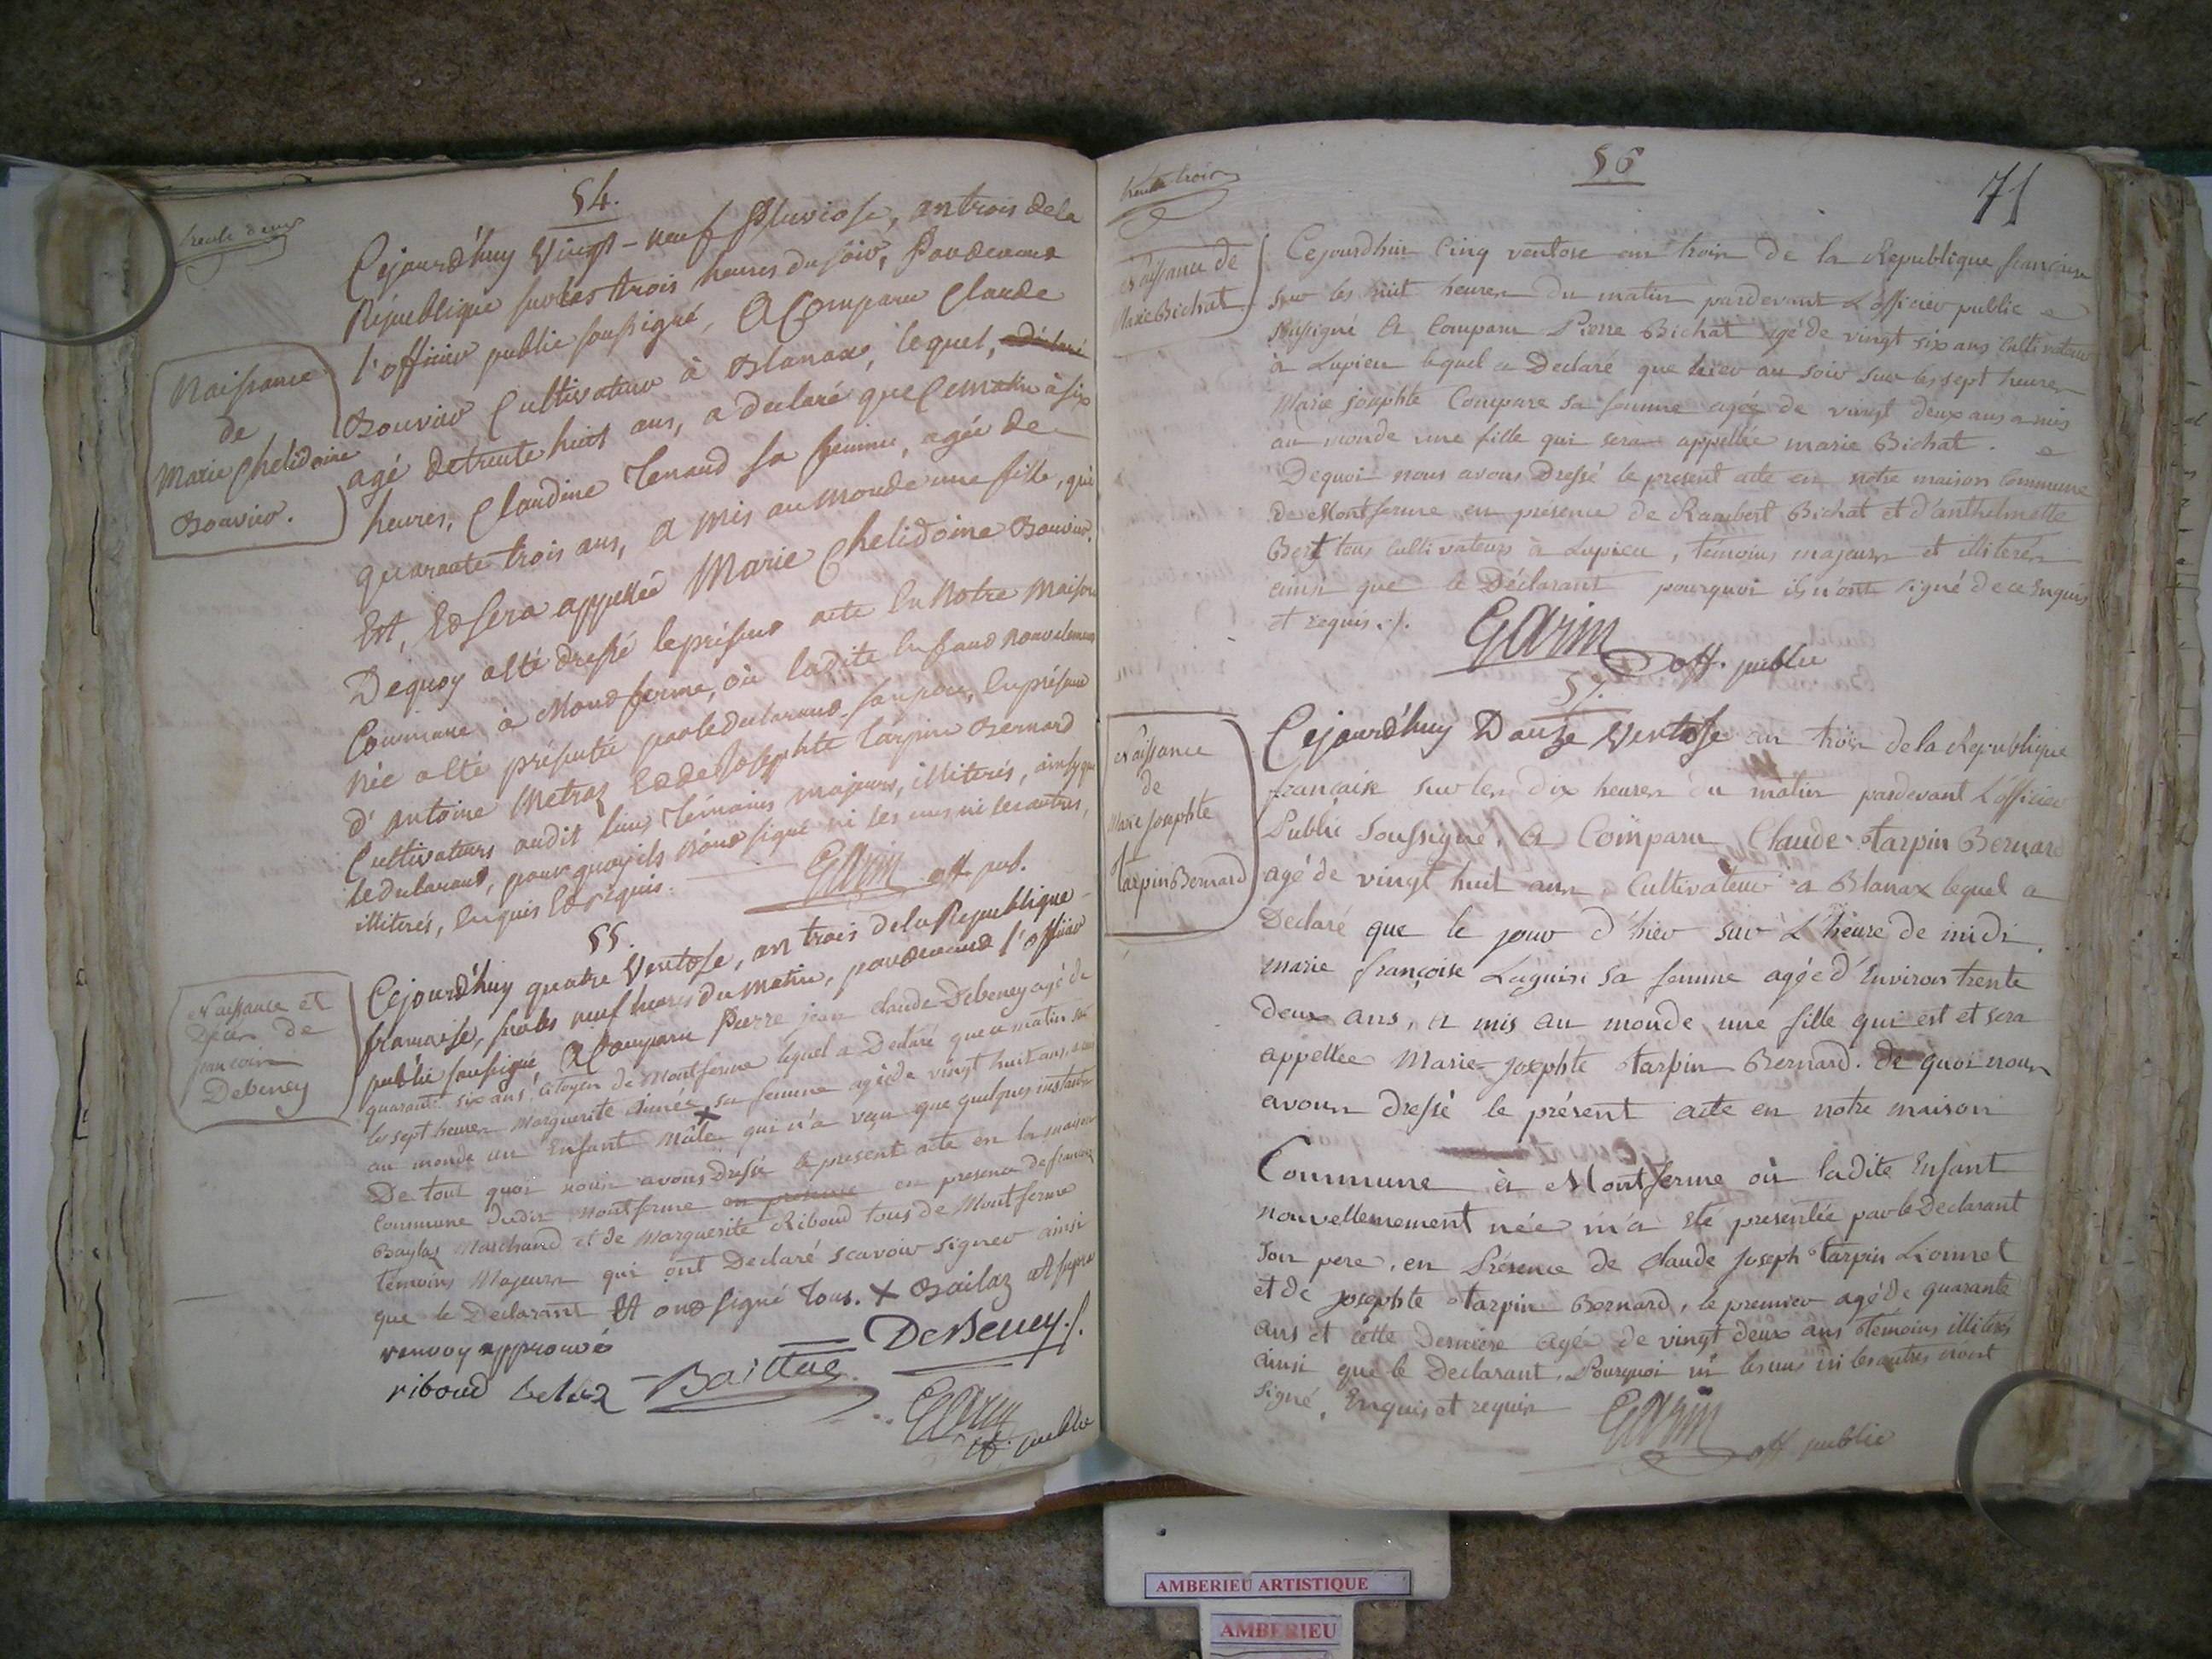 trente deux
54.
Cejourd'huy Vingt-neuf Pluviose, an trois dela
République surles trois heures du soir, Pardevant
l'officier public soussigné, A Comparu Claude
Bouvier Cultivateur à Blanax, lequel, a déclaré
agé detrente huit ans, a declaré que Cematin à six
heures, Claudine Tenand sa femme, agée de
quarante trois ans, a mis au monde une fille, qui
Est, Et sera appellée Marie Chelidoine Bouvier.
Dequoy a Eté dressé le présent acte En Notre Maison
Commune à Montferme, où ladite Enfant nouvellement
née a Eté présentée par le declarant son père, En présence
d'Antoine Metraz Et de Josephte Tarpin Bernard
Cultivateurs audit lieu, Témoins majeurs, illiterés, ainsy que
le declarant, pourquoy ils n'ont signé ni les uns ni les autres,
illiterés, Enquis Et Requis.
Garin off. pub.
Naissance
de
Marie Chelidoine
Bouvier.
55.
Cejourd'huy quatre Ventose, an trois de la Republique
francaise, sur les neuf heures du matin, pardevant l'officier
public soussigné, A Comparu Pierre jean claude Debeney agé de
quarante six ans, Citoyen de Montferme lequel a Declaré que ce matin sur
les sept heures Marguerite aimée sa femme agée de vingt huit ans, a mis
au monde un Enfant Mâle X qui n'a vecu que quelques instants
De tout quoi nous avons Dressé le present acte en la maison
Commune dudit Montferme en presence en presence de francois
Baylaz Marchand et de Marguerite Riboud tous de Montferme
témoins Majeurs qui ont Declaré scavoir signer ainsi
que le Declarant Et ont signé Tous. X Bailaz et
renvoy approuvé
riboud Bailaz Debeney
Garin
off. public
Naissance et
Décès de
francois
Debeney
trente trois
56
71
Cejourdhui Cinq ventose an trois de la Republique francaise
Sur les huit heures du matin pardevant L'officier public
Soussigné A Comparu Pierre Bichat agé de vingt six ans Cultivateur
à Lupieu lequel a Declaré que hier au soir sur les sept heures
Marie josephte Compare sa femme agée de vingt deux ans a mis
au monde une fille qui sera appellée marie Bichat.
Dequoi nous avons Dressé le present acte en notre maison Commune
de Montferme en presence de Rambert Bichat et d'anthelmette
Bert tous Cultivateurs à Lupieu, témoins majeurs et illiterés
ainsi que le Déclarant pourquoi ils n'ont signé de ce Enquis
et requis ./.
Garin off. public
Naissance de
Marie Bichat
57.
Cejourd'huy Douze Ventose an trois dela Republique
française sur les dix heures du matin pardevant L'officier
Public Soussigné, A Comparu Claude Tarpin Bernard
agé de vingt huit ans Cultivateur a Blanax lequel a
Declaré que le jour d'hier sur L'heure de midi.
marie françoise Laguin sa femme agée d'Environ trente
deux ans, a mis au monde une fille qui est et sera
appellée Marie-josephte tarpin Bernard. de quoi nous
avons dressé le présent acte en notre maison
Commune à Montferme où ladite Enfant
nouvellemement née m'a Eté presentée par le Declarant
Son pere, en Présence de claude joseph tarpin Lonnet
et de josephte tarpin Bernard, le premier agé de quarante
ans et cette derniere agée de vingt deux ans témoins illiterés
ainsi que le Declarant, Pourquoi ni les uns ni les autres n'ont
signé, Enquis et requis
Garin off public
Naissance
de
Marie Josephte
tarpin Bernard
AMBERIEU ARTISTIQUE
AMBERIEU